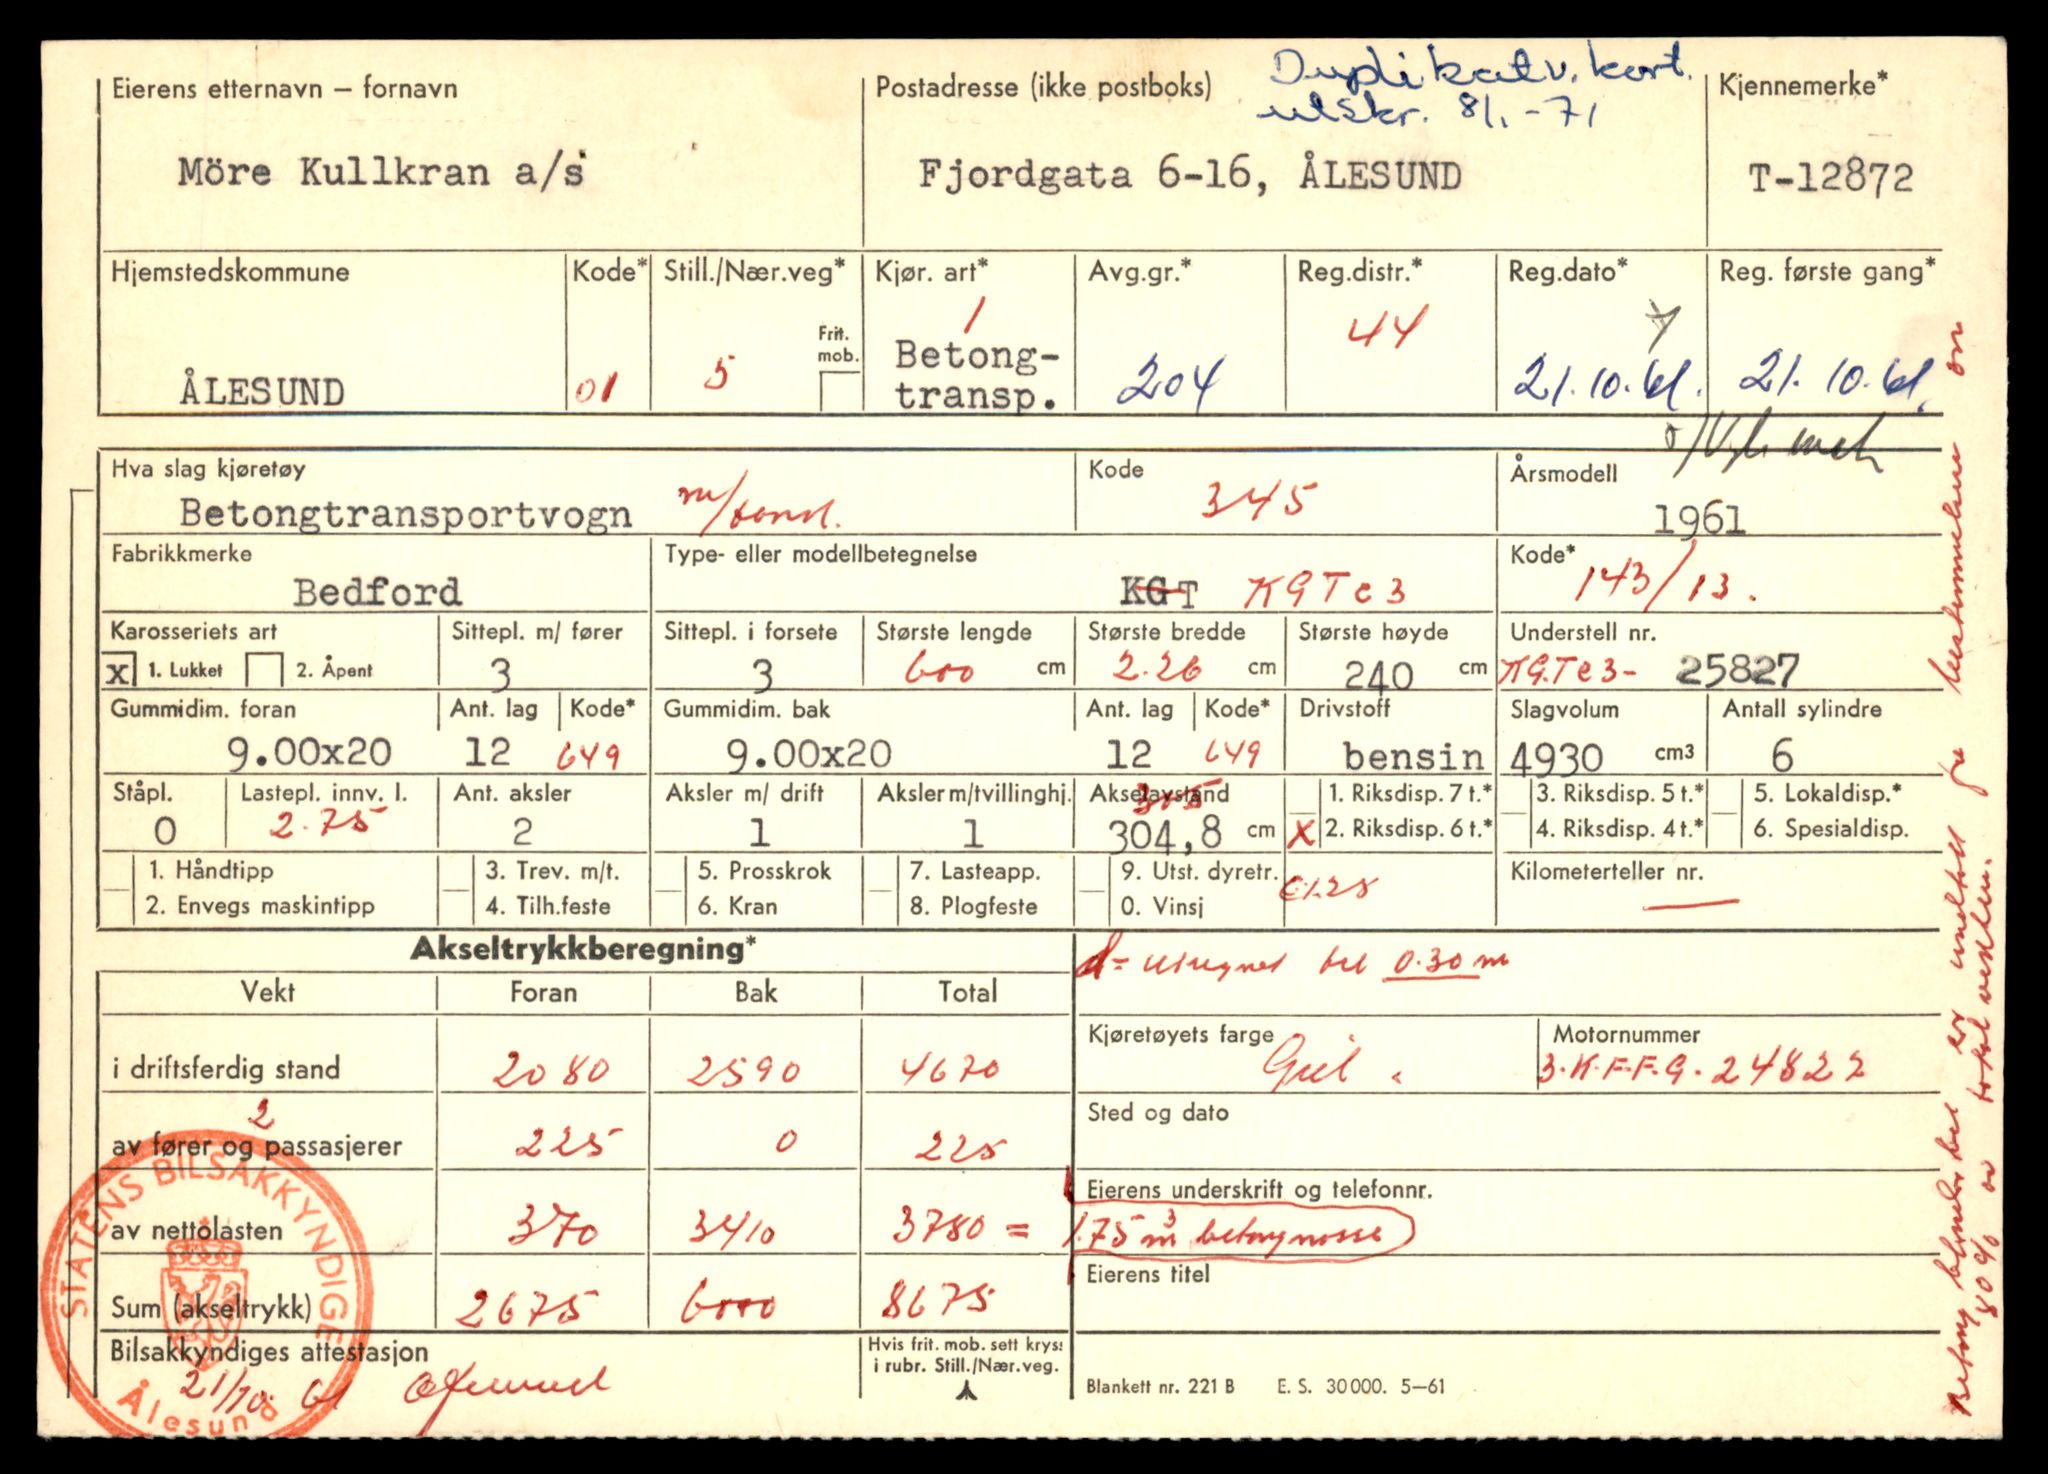 Duplikat v. kort.
utskr. 8/1-71
Eierens etternavn – fornavn
Postadresse (ikke postboks)
Kjennemerke*
Möre Kullkran a/s
Fjordgata 6-16, ÅLESUND
T-12872
Hjemstedskommune
Kode*
Still./Nær.veg*
Kjør. art*
Avg.gr.*
Reg.distr.*
Reg.dato*
Reg. første gang*
ÅLESUND
01
5
Frit.
mob.
1
Betong-
transp.
204
44
21.10.61.
21.10.61.
Hva slag kjøretøy
Kode
Årsmodell
Betongtransportvogn
345
1961
Fabrikkmerke
Type- eller modellbetegnelse
Kode*
Bedford
KGT KGTc3
143/13.
Karosseriets art
Sittepl. m/ fører
Sittepl. i forsete
Største lengde
Største bredde
Største høyde
Understell nr.
x 1. Lukket 2. Åpent
3
3
600 cm
2.26 cm
240 cm
KGTc3- 25827
Gummidim. foran
Ant. lag
Kode*
Gummidim. bak
Ant. lag
Kode*
Drivstoff
Slagvolum
Antall sylindre
9.00x20
12
649
9.00x20
12
649
bensin
4930 cm3
6
Ståpl.
Lastepl. innv. l.
Ant. aksler
Aksler m/ drift
Aksler m/tvillinghj.
Akselavstand
0
2.75
2
1
1
305
304,8 cm
1. Riksdisp. 7 t.*
x 2. Riksdisp. 6 t.*
3. Riksdisp. 5 t.*
4. Riksdisp. 4 t.*
5. Lokaldisp.*
6. Spesialdisp.
1. Håndtipp
2. Envegs maskintipp
3. Trev. m/t.
4. Tilh.feste
5. Prosskrok
6. Kran
7. Lasteapp.
8. Plogfeste
9. Utst. dyretr.
0. Vinsj
Kilometerteller nr.
Akseltrykkberegning*
d = utregnet til 0.30 m
Vekt
Foran
Bak
Total
i driftsferdig stand
2080
2590
4670
Kjøretøyets farge
Gul.
Motornummer
3.K.F.F.G.24822
2
av fører og passasjerer
225
0
225
Sted og dato
av nettolasten
370
3410
3780 =
Eierens underskrift og telefonnr.
1.75 m3 betongmasse
Sum (akseltrykk)
2675
6000
8675
Eierens titel
Bilsakkyndiges attestasjon
21/10 61
Hvis frit. mob. sett kryss
i rubr. Still./Nær.veg.
Blankett nr. 221 B E. S. 30000. 5–61
STATENS BILSAKKYNDIGE
Ålesund
Betong blander bil er unntatt fra bestemmelsen om
80 % av total vekten.